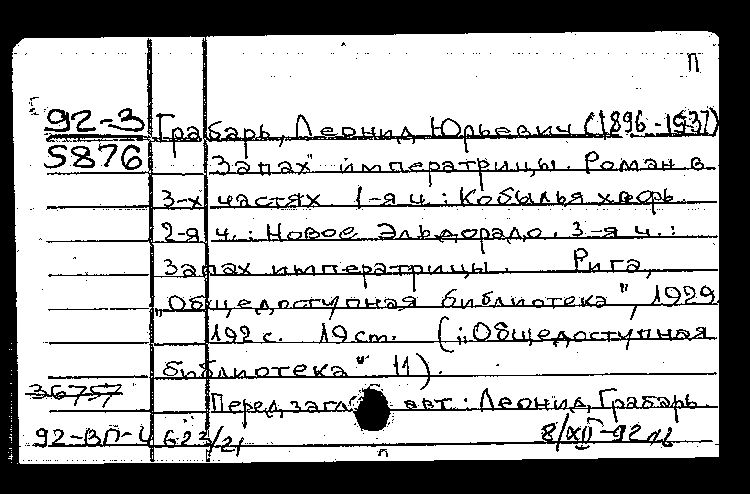 П
92-3 Грабарь, Леонид Юрьевич (1896-1937)
5876 Запах императрицы. Роман в
3-х частях 1-я ч.: Кобылья хворь
2-я ч.: Новое Эльдорадо. 3-я ч.:
Запах императрицы. Рига,
„Общедоступная библиотека", 1929
192 с. 19 ст. („Общедоступная
библиотека" 11).
36757 Перед загл. авт.: Леонид Грабарь
92-ВП-4 623/21 8/XII-92
п